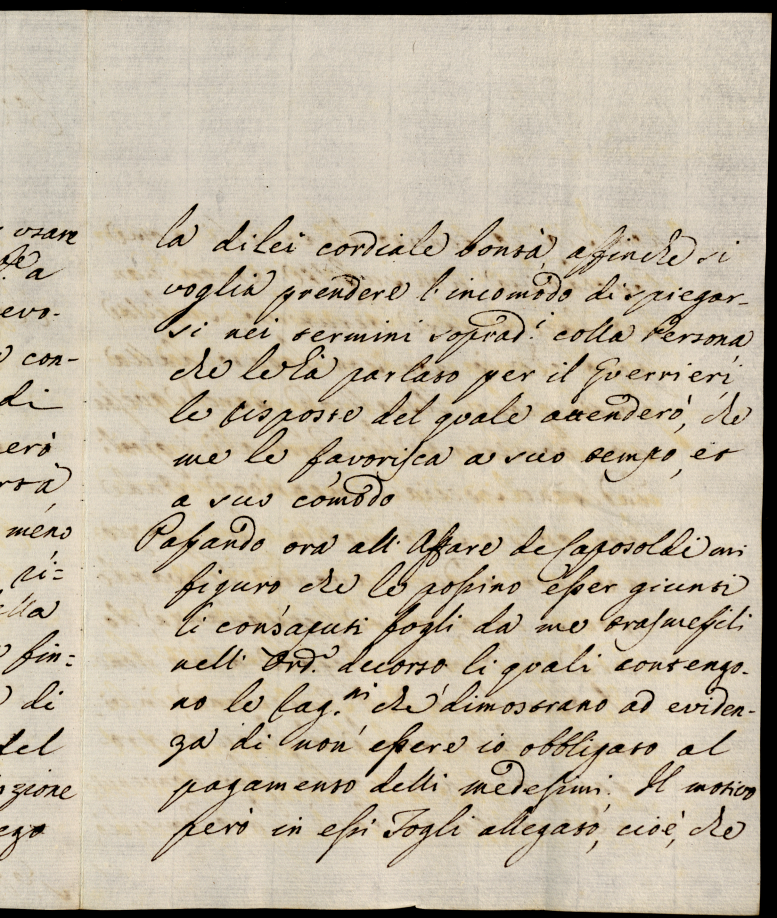 usare
a
evo-
con-
di
erò
meno
ri=
ella
fin=
di
del
zione
ego
la di lei cordiale bontà, affinche si
voglia prendere l'incomodo di spiegar-
si nei termini soprad.i colla Persona
che le hà parlato per il Guerrieri,
le risposte del quale attenderò, che
me le favorisca a suo tempo, et
a suo còmodo
Passando ora all'Affare de Caposoldi mi
figuro che le possino esser giunti
li consaputi fogli da me trasmessili
nell'Ord.o decorso li quali contengo-
no le Rag.ni che dimostrano ad eviden-
za di non essere io obbligato al
pagamento delli medesimi. Il motivo
però in essi Fogli allegato, cioè, che